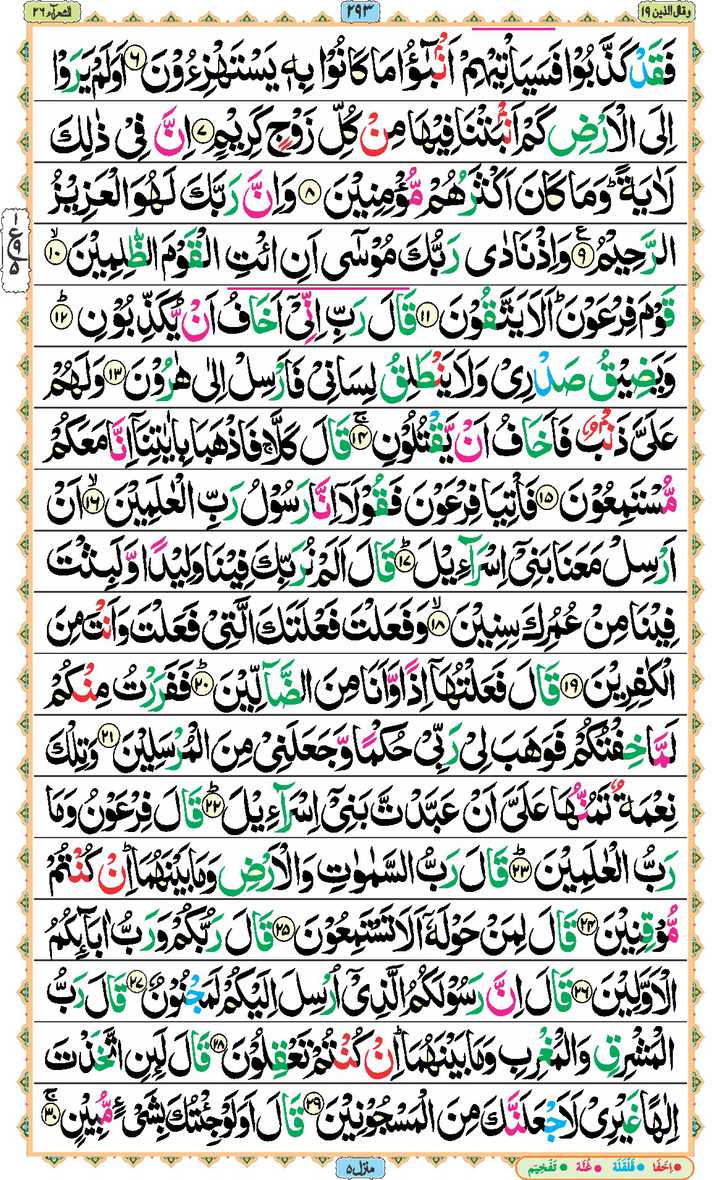 وقال الذین ۱۹ ۲۹۳ الشعرآء ۲۶
فَقَدْ كَذَّبُوْا فَسَیَاْتِیْهِمْ اَنْۢبٰٓؤُا مَا كَانُوْا بِهٖ یَسْتَهْزِءُوْنَ ۶ اَوَلَمْ یَرَوْا
اِلَی الْاَرْضِ كَمْ اَنْۢبَتْنَا فِیْهَا مِنْ كُلِّ زَوْجٍ كَرِیْمٍ ۷ اِنَّ فِیْ ذٰلِكَ
لَاٰیَةً ؕ وَمَا كَانَ اَكْثَرُهُمْ مُّؤْمِنِیْنَ ۸ وَاِنَّ رَبَّكَ لَهُوَ الْعَزِیْزُ
الرَّحِیْمُ ۹ ع وَاِذْ نَادٰی رَبُّكَ مُوْسٰۤی اَنِ ائْتِ الْقَوْمَ الظّٰلِمِیْنَ ۱۰ ۙ
۱ ع ۹ ۵
قَوْمَ فِرْعَوْنَ ؕ اَلَا یَتَّقُوْنَ ۱۱ قَالَ رَبِّ اِنِّیْۤ اَخَافُ اَنْ یُّكَذِّبُوْنِ ۱۲ ؕ
وَیَضِیْقُ صَدْرِیْ وَلَا یَنْطَلِقُ لِسَانِیْ فَاَرْسِلْ اِلٰی هٰرُوْنَ ۱۳ وَلَهُمْ
عَلَیَّ ذَنْۢبٌ فَاَخَافُ اَنْ یَّقْتُلُوْنِ ۱۴ ۚ قَالَ كَلَّا ۚ فَاذْهَبَا بِاٰیٰتِنَاۤ اِنَّا مَعَكُمْ
مُّسْتَمِعُوْنَ ۱۵ فَاْتِیَا فِرْعَوْنَ فَقُوْلَاۤ اِنَّا رَسُوْلُ رَبِّ الْعٰلَمِیْنَ ۱۶ ۙ اَنْ
اَرْسِلْ مَعَنَا بَنِیْۤ اِسْرَآءِیْلَ ۱۷ ؕ قَالَ اَلَمْ نُرَبِّكَ فِیْنَا وَلِیْدًا وَّلَبِثْتَ
فِیْنَا مِنْ عُمُرِكَ سِنِیْنَ ۱۸ ۙ وَفَعَلْتَ فَعْلَتَكَ الَّتِیْ فَعَلْتَ وَاَنْتَ مِنَ
الْكٰفِرِیْنَ ۱۹ قَالَ فَعَلْتُهَاۤ اِذًا وَّاَنَا مِنَ الضَّآلِّیْنَ ۲۰ ؕ فَفَرَرْتُ مِنْكُمْ
لَمَّا خِفْتُكُمْ فَوَهَبَ لِیْ رَبِّیْ حُكْمًا وَّجَعَلَنِیْ مِنَ الْمُرْسَلِیْنَ ۲۱ وَتِلْكَ
نِعْمَةٌ تَمُنُّهَا عَلَیَّ اَنْ عَبَّدْتَّ بَنِیْۤ اِسْرَآءِیْلَ ۲۲ ؕ قَالَ فِرْعَوْنُ وَمَا
رَبُّ الْعٰلَمِیْنَ ۲۳ ؕ قَالَ رَبُّ السَّمٰوٰتِ وَالْاَرْضِ وَمَا بَیْنَهُمَا ؕ اِنْ كُنْتُمْ
مُّوْقِنِیْنَ ۲۴ قَالَ لِمَنْ حَوْلَهٗۤ اَلَا تَسْتَمِعُوْنَ ۲۵ قَالَ رَبُّكُمْ وَرَبُّ اٰبَآىِٕكُمُ
الْاَوَّلِیْنَ ۲۶ قَالَ اِنَّ رَسُوْلَكُمُ الَّذِیْۤ اُرْسِلَ اِلَیْكُمْ لَمَجْنُوْنٌ ۲۷ قَالَ رَبُّ
الْمَشْرِقِ وَالْمَغْرِبِ وَمَا بَیْنَهُمَا ؕ اِنْ كُنْتُمْ تَعْقِلُوْنَ ۲۸ قَالَ لَىِٕنِ اتَّخَذْتَ
اِلٰهًا غَیْرِیْ لَاَجْعَلَنَّكَ مِنَ الْمَسْجُوْنِیْنَ ۲۹ قَالَ اَوَلَوْ جِئْتُكَ بِشَیْءٍ مُّبِیْنٍ ۳۰ ۚ
منزل ۵
اِخفَا قَلْقَلَة غُنَّة تَفْخِیْم